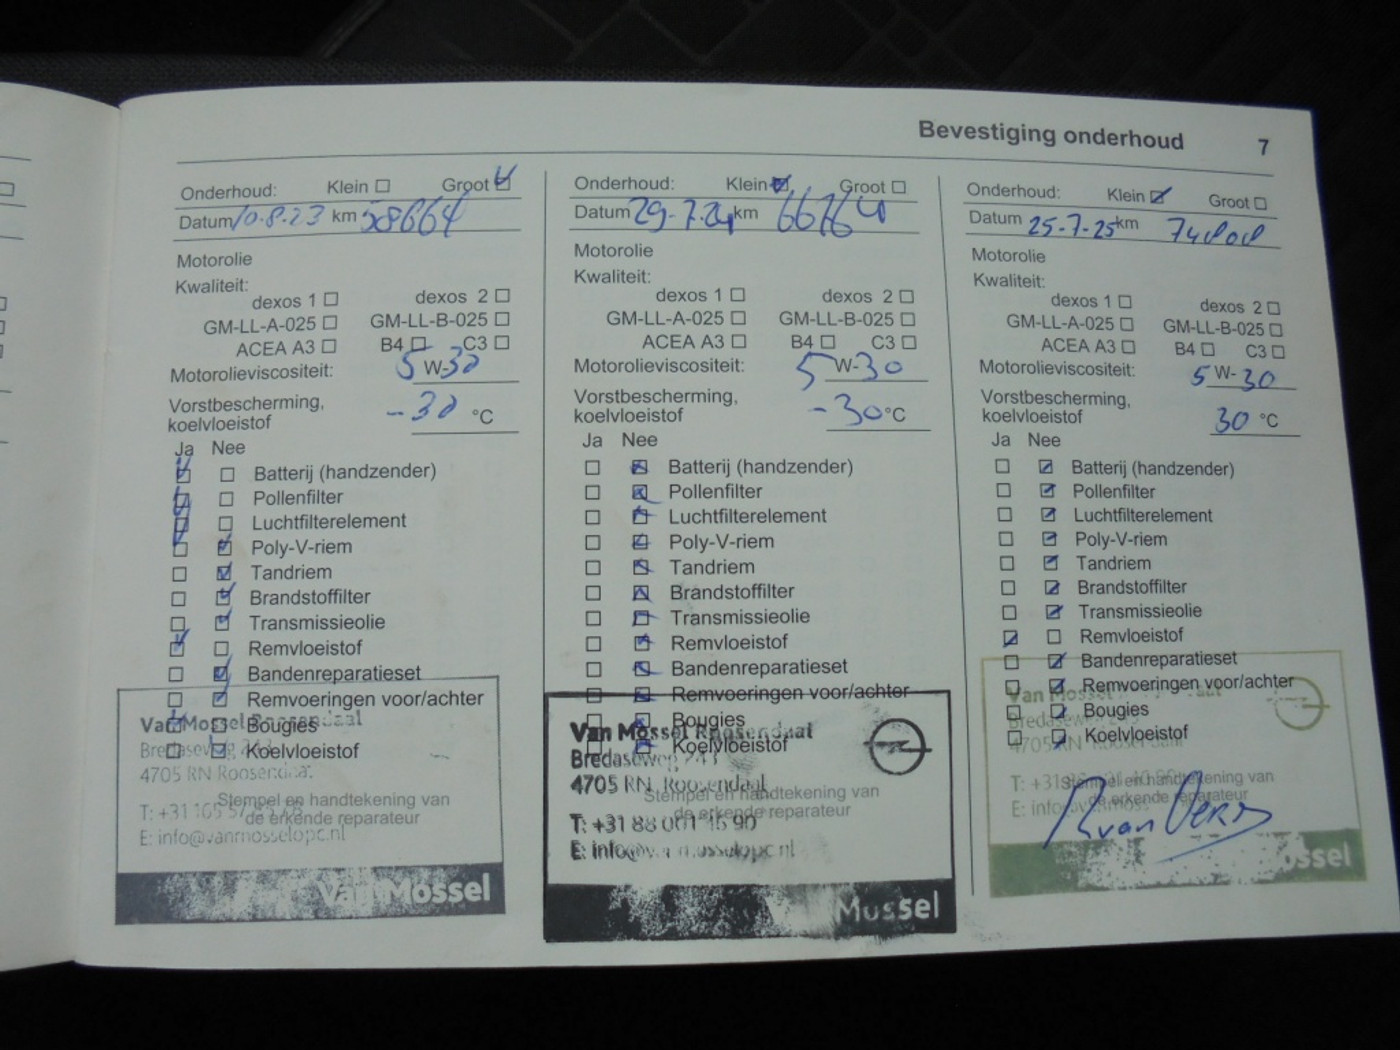 Bevestiging onderhoud 7
Onderhoud: Klein ☐ Groot ☑
Datum 10-8-23 km 58664
Motorolie
Kwaliteit:
dexos 1 ☐ dexos 2 ☐
GM-LL-A-025 ☐ GM-LL-B-025 ☐
ACEA A3 ☐ B4 ☐ C3 ☐
Motorolieviscositeit: 5 W-30
Vorstbescherming,
koelvloeistof -30 °C
Ja Nee
☑ ☐ Batterij (handzender)
☑ ☐ Pollenfilter
☑ ☐ Luchtfilterelement
☐ ☑ Poly-V-riem
☐ ☑ Tandriem
☐ ☑ Brandstoffilter
☐ ☑ Transmissieolie
☑ ☐ Remvloeistof
☐ ☑ Bandenreparatieset
☐ ☑ Remvoeringen voor/achter
☑ ☐ Bougies
☐ ☑ Koelvloeistof
Van Mossel Roosendaal
Bredaseweg
4705 RN Roosendaal
Stempel en handtekening van
de erkende reparateur
T: +31
E: info@vanmosselopc.nl
Van Mossel
Onderhoud: Klein ☑ Groot ☐
Datum 29-7-24 km
Motorolie
Kwaliteit:
dexos 1 ☐ dexos 2 ☐
GM-LL-A-025 ☐ GM-LL-B-025 ☐
ACEA A3 ☐ B4 ☐ C3 ☐
Motorolieviscositeit: 5 W-30
Vorstbescherming,
koelvloeistof -30 °C
Ja Nee
☐ ☑ Batterij (handzender)
☐ ☑ Pollenfilter
☐ ☑ Luchtfilterelement
☐ ☑ Poly-V-riem
☐ ☑ Tandriem
☐ ☑ Brandstoffilter
☐ ☑ Transmissieolie
☐ ☑ Remvloeistof
☐ ☑ Bandenreparatieset
☐ ☑ Remvoeringen voor/achter
☐ ☑ Bougies
☐ ☑ Koelvloeistof
Van Mossel Roosendaal
Bredaseweg 243
4705 RN Roosendaal
Stempel en handtekening van
de erkende reparateur
T: +31 88 001 46 90
E: info@vanmosselopc.nl
Mossel
Onderhoud: Klein ☑ Groot ☐
Datum 25-7-25 km
Motorolie
Kwaliteit:
dexos 1 ☐ dexos 2 ☐
GM-LL-A-025 ☐ GM-LL-B-025 ☐
ACEA A3 ☐ B4 ☐ C3 ☐
Motorolieviscositeit: 5 W-30
Vorstbescherming,
koelvloeistof 30 °C
Ja Nee
☐ ☑ Batterij (handzender)
☐ ☑ Pollenfilter
☐ ☑ Luchtfilterelement
☐ ☑ Poly-V-riem
☐ ☑ Tandriem
☐ ☑ Brandstoffilter
☐ ☑ Transmissieolie
☑ ☐ Remvloeistof
☐ ☑ Bandenreparatieset
☐ ☑ Remvoeringen voor/achter
☐ ☑ Bougies
☐ ☑ Koelvloeistof
Van Mossel
Bredaseweg
4705 RN
Stempel en handtekening van
de erkende reparateur
T: +31
E: info@
ossel